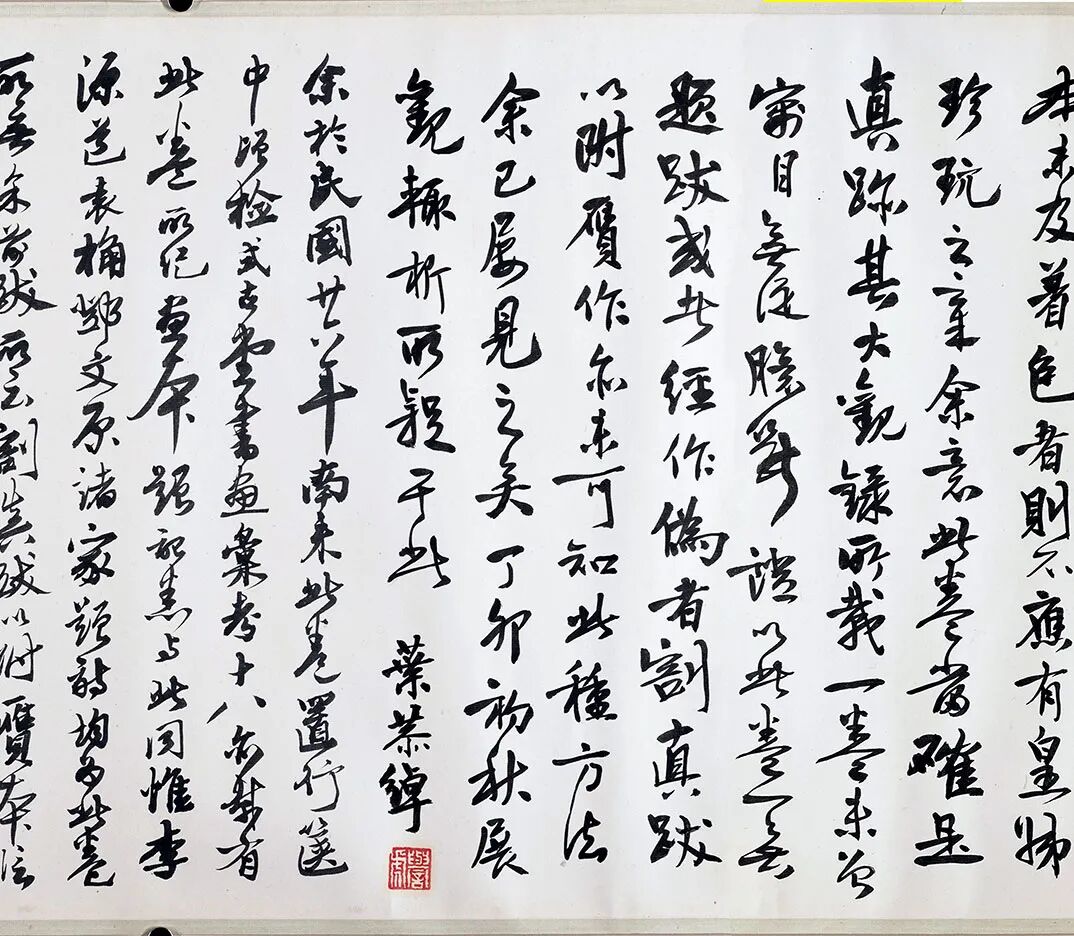 本未及著色者則不應有皇姊
珍玩之章余意此卷當確是
真跡其大觀錄所載一卷未曾
寓目無從臆斷證以此卷一無
題跋或者經作偽者割真跋
以附贋作亦未可知此種方法
余已屢見之矣丁卯初秋展
觀輒析所疑于此 葉恭綽
余於民國廿六年南來此卷置行篋
中頃檢式古堂書畫彙考十八亦載有
此卷所紀畫本題記悉与此同惟李
源道袁桷鄧文原諸家題詩均為此卷
所無余前跋所云割真跋以附贋本信